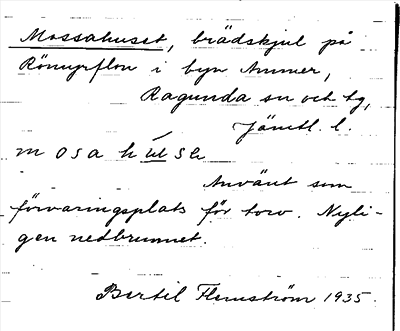 Mossahuset, brädskjul på
Römyrflon i byn Ammer,
Ragunda sn och tg,
Jämtl. l.
mosa húse
Använt som
förvaringsplats för torv. Nyli-
gen nedbrunnet.
Bertil Flemström 1935.